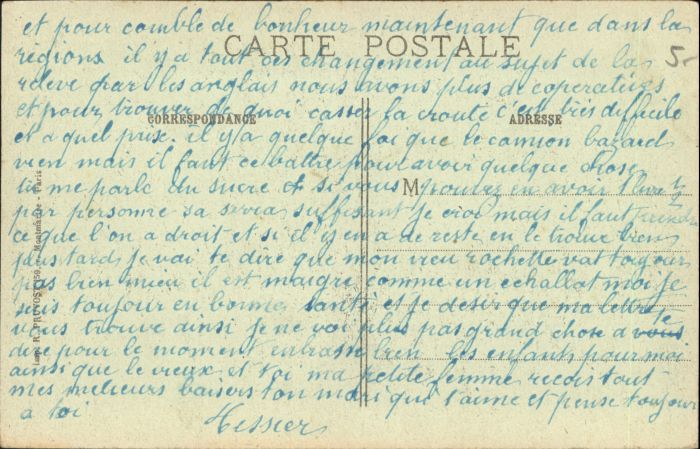 et pour comble de bonheur maintenant que dans la
CARTE POSTALE
5-
région il y a tout ces changement au sujet de la
releve par les anglais nous avons plus de coperatives
et pour trouver de quoi casser la croute c'est très difficile
CORRESPONDANCE
ADRESSE
et a quel prix. il y a quelque foi que le camion bazard
vien mais il faut ce battre pour avoir quelque chose
tu me parle du sucre et si vous pouvez en avoir 1 livre
M
par personne sa sera suffisant je croi mais il faut prendre
ce que l'on a droit et si il y en a de reste en le trouve bien
plus tard je vai te dire que mon vieu rochette vat toujour
pas bien mieu il est maigre comme un echallot moi je
suis toujour en bonne santé et je desir que ma lettre
vous trouve ainsi je ne voi plus pas grand chose a te
dire pour le moment enbrasse bien les enfants pour moi
ainsi que le vieux et toi ma petite femme recois tout
mes melieurs baisers ton mari qui t'aime et pense toujour
a toi
Tessier
Imp. R. PRUVOST, 159, r. Montmartre - Paris